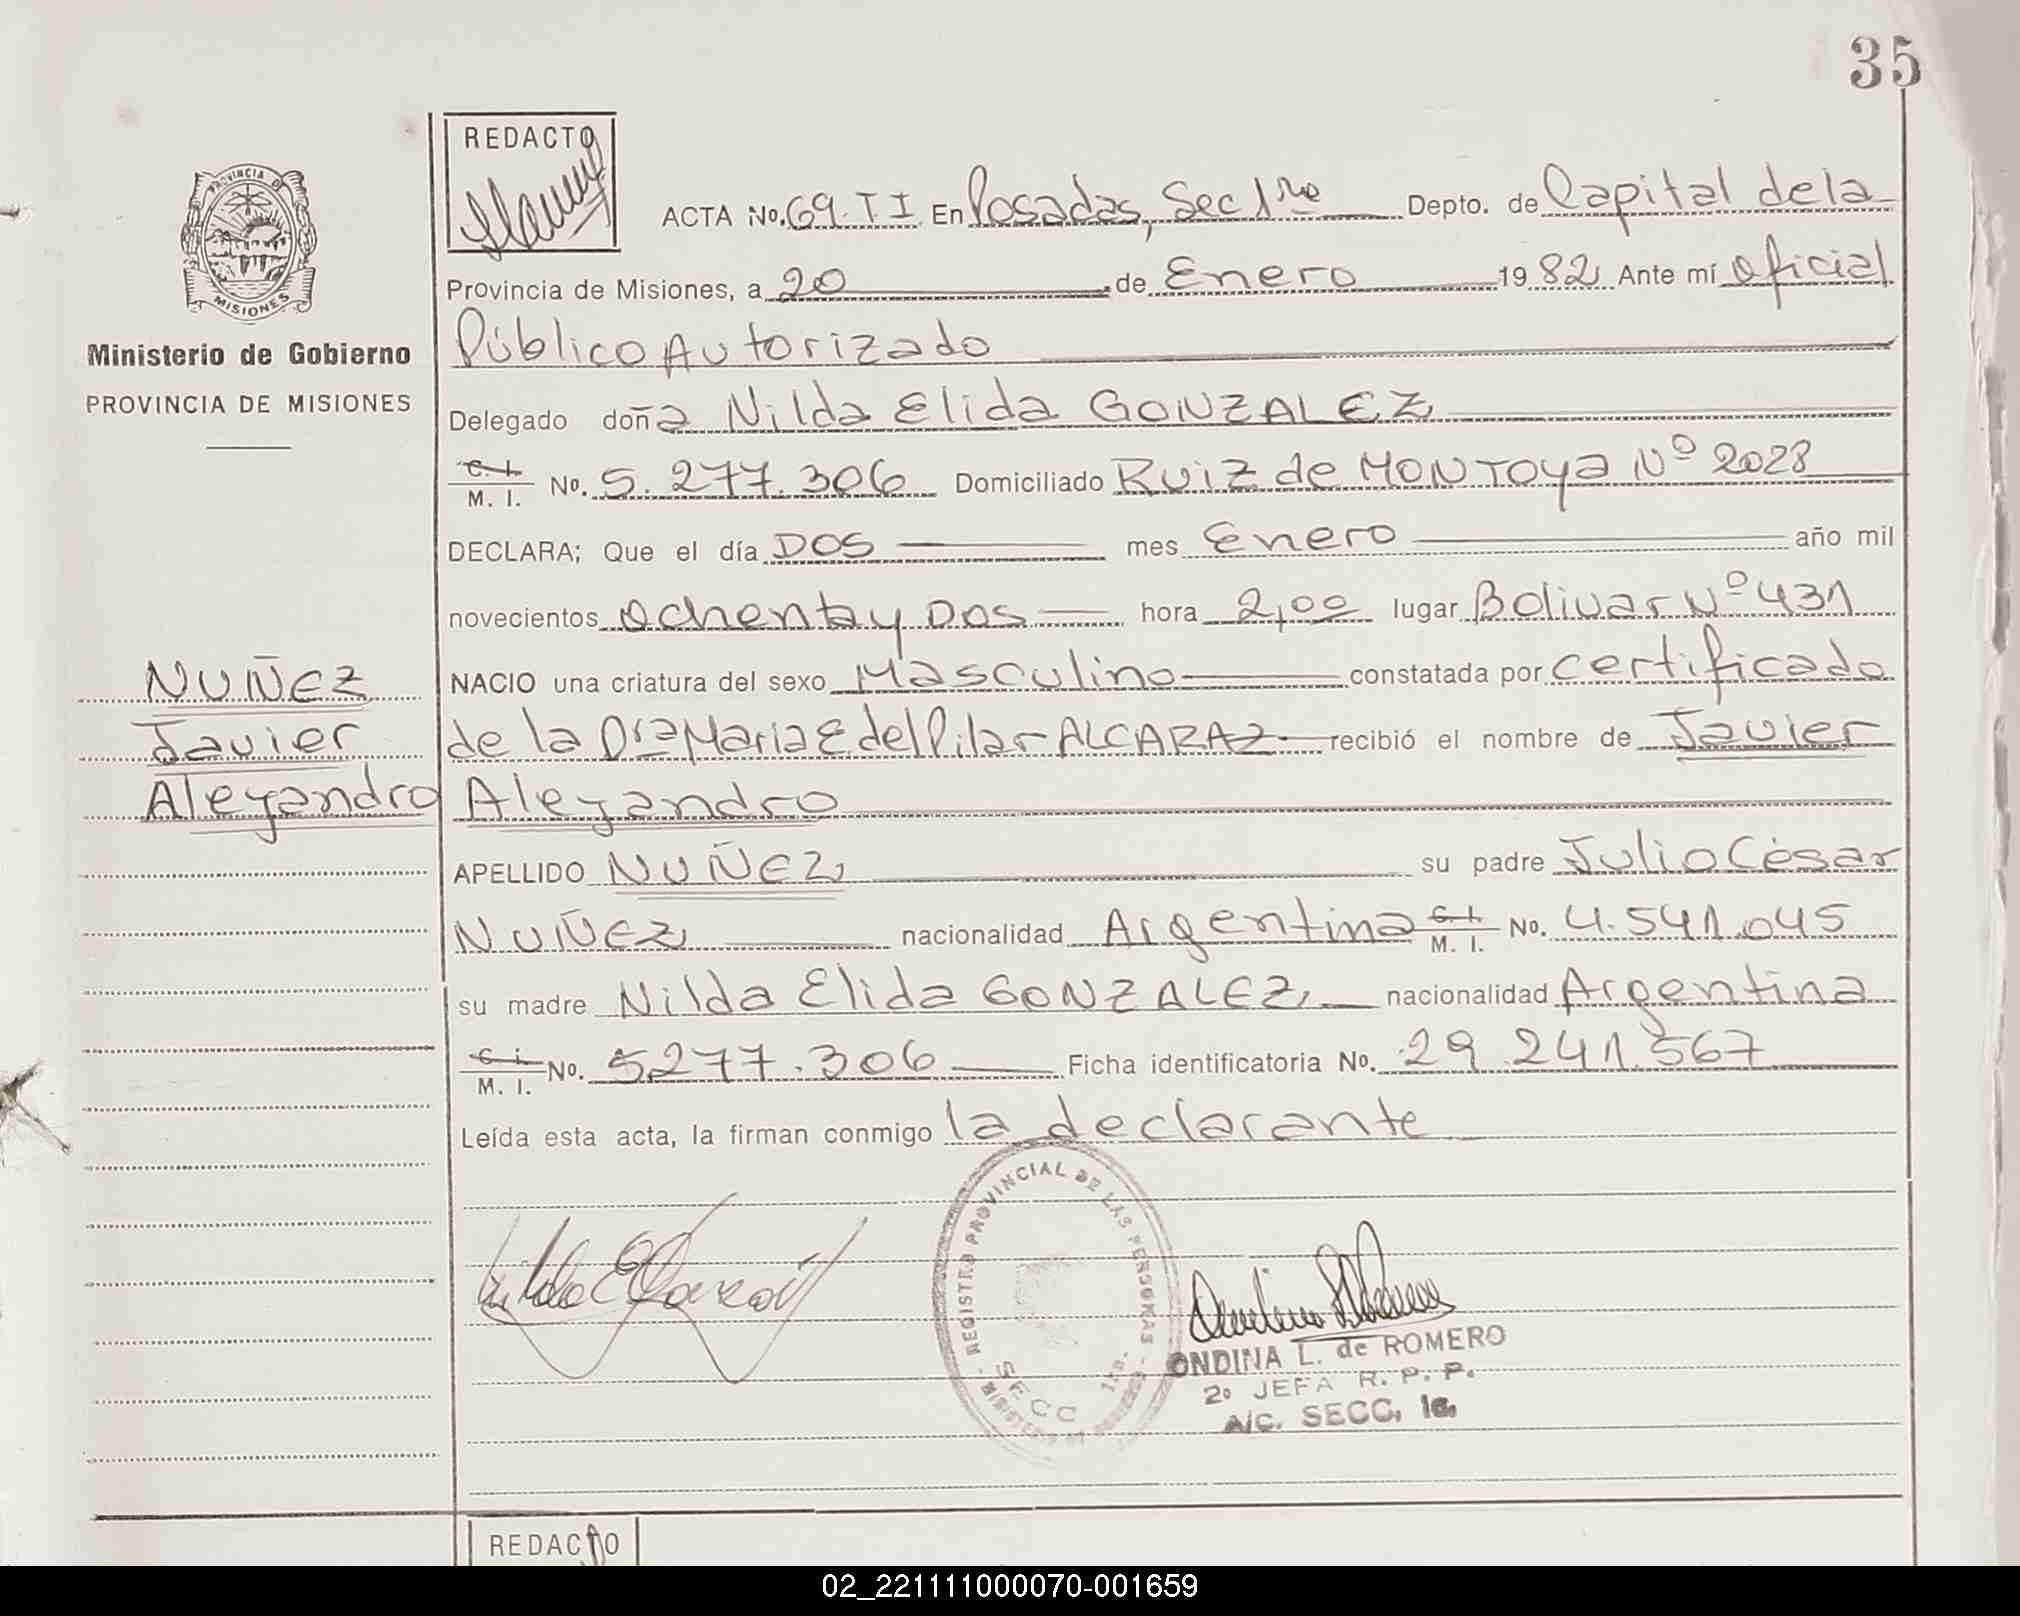 35
REDACTO
ACTA No. 69. T I. En Posadas, Sec 1ra Depto. de Capital de la
PROVINCIA DE
MISIONES
Provincia de Misiones, a 20 de Enero 1982 Ante mí oficial
Ministerio de Gobierno
Público Autorizado
PROVINCIA DE MISIONES
Delegado doña Nilda Elida GONZALEZ
C. I.
M. I. No. 5.277.306 Domiciliado Ruiz de MONTOYA Nº 2028
DECLARA; Que el día DOS mes Enero año mil
novecientos ochenta y DOS hora 2,00 lugar Bolivar Nº 431
NUÑEZ
NACIO una criatura del sexo Masculino constatada por certificado
Javier
de la Dra Maria E del Pilar ALCARAZ recibió el nombre de Javier
Alejandro
Alejandro
APELLIDO NUÑEZ su padre Julio César
NUÑEZ nacionalidad Argentina C. I. M. I. No. 4.541.045
su madre Nilda Elida GONZALEZ, nacionalidad Argentina
C. I.
M. I. No. 5277.306 Ficha identificatoria No. 29.241.567
Leída esta acta, la firman conmigo la declarante
REGISTRO PROVINCIAL DE LAS PERSONAS
MINISTERIO DE GOBIERNO
SECC 1ra.
ONDINA L. de ROMERO
2º JEFA R. P. P.
A/C. SECC. 1a.
REDACTO
02_221111000070-001659